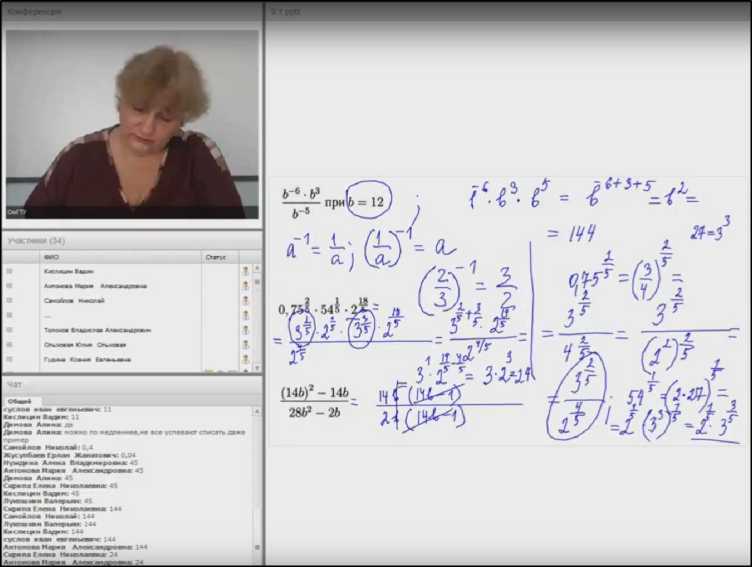 Конференция
9.1.pptx
Участники (34)
ФИО
Статус
Кислицин Вадим
Антонова Мария Александровна
Самойлов Николай
...
Толоков Владислав Александрович
Ольховая Юлия Ольховая
Гудина Ксения Евгеньевна
Чат
Общий
суслов иван евгеньевич: 11
Кислицин Вадим: 11
Демова Алина: да
Демова Алина: можно по медленнее,не все успевают списать даже
пример
Самойлов Николай: 0,4
Жусупбаев Ерлан Жанатович: 0,04
Нуждина Алена Владимировна: 45
Антонова Мария Александровна: 45
Демова Алина: 45
Скрипа Елена Николаевна: 45
Кислицин Вадим: 45
Лукошкин Валерьян: 45
Скрипа Елена Николаевна: 144
Самойлов Николай: 144
Лукошкин Валерьян: 144
Кислицин Вадим: 144
суслов иван евгеньевич: 144
Антонова Мария Александровна: 144
Скрипа Елена Николаевна: 24
Антонова Мария Александровна: 24
b⁻⁶ · b³ / b⁻⁵ при b = 12 ; b⁻⁶ · b³ · b⁵ = b⁻⁶⁺³⁺⁵ = b² =
= 144 27 = 3³
a⁻¹ = 1/a ; (1/a)⁻¹ = a
(2/3)⁻¹ = 3/2
0,75^(2/5) = (3/4)^(2/5) =
0,75^(2/5) · 54^(1/5) · 2^(18/5) =
= 3^(2/5) · 2^(1/5) · 3^(3/5) · 2^(18/5) / 2^(4/5) = 3^(2/5+3/5) · 2^(19/5) / 2^(4/5) =
3¹ · 2^(19/5-4/5) = 3 · 2³ = 24
= 3^(2/5) / 4^(2/5) = 3^(2/5) / (2²)^(2/5) =
= 3^(2/5) / 2^(4/5) ; 54^(1/5) = (2 · 27)^(1/5) =
= 2^(1/5) (3³)^(1/5) = 2^(1/5) · 3^(3/5)
(14b)² − 14b / 28b² − 2b = 14b (14b − 1) / 2b (14b − 1)